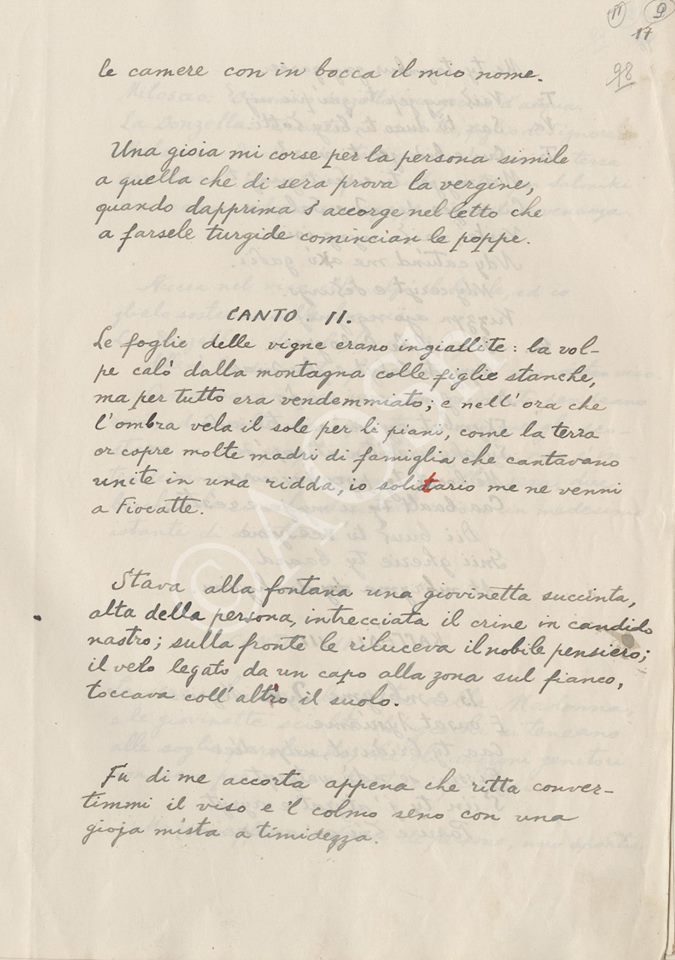 11 9
17
98
le camere con in bocca il mio nome.
Una gioia mi corse per la persona simile
a quella che di sera prova la vergine,
quando dapprima s'accorge nel letto che
a farsele turgide comincian le poppe.
CANTO. II.
Le foglie delle vigne erano ingiallite: la vol-
pe calò dalla montagna colle figlie stanche,
ma per tutto era vendemmiato; e nell'ora che
l'ombra vela il sole per li piani, come la terra
or copre molte madri di famiglia che cantavano
unite in una ridda, io solitario me ne venni
a Fiocatte.
Stava alla fontana una giovinetta succinta,
alta della persona, intrecciata il crine in candido
nastro; sulla fronte le riluceva il nobile pensiero;
il velo legato da un capo alla zona sul fianco,
toccava coll'altro il suolo.
Fu di me accorta appena che ritta conver-
timmi il viso e 'l colmo seno con una
gioja mista a timidezza.